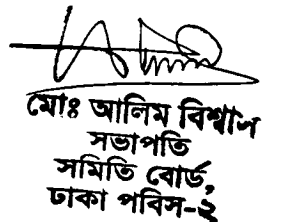 মোঃ আলিম বিশ্বাস
সভাপতি
সমিতি বোর্ড,
ঢাকা পবিস-২